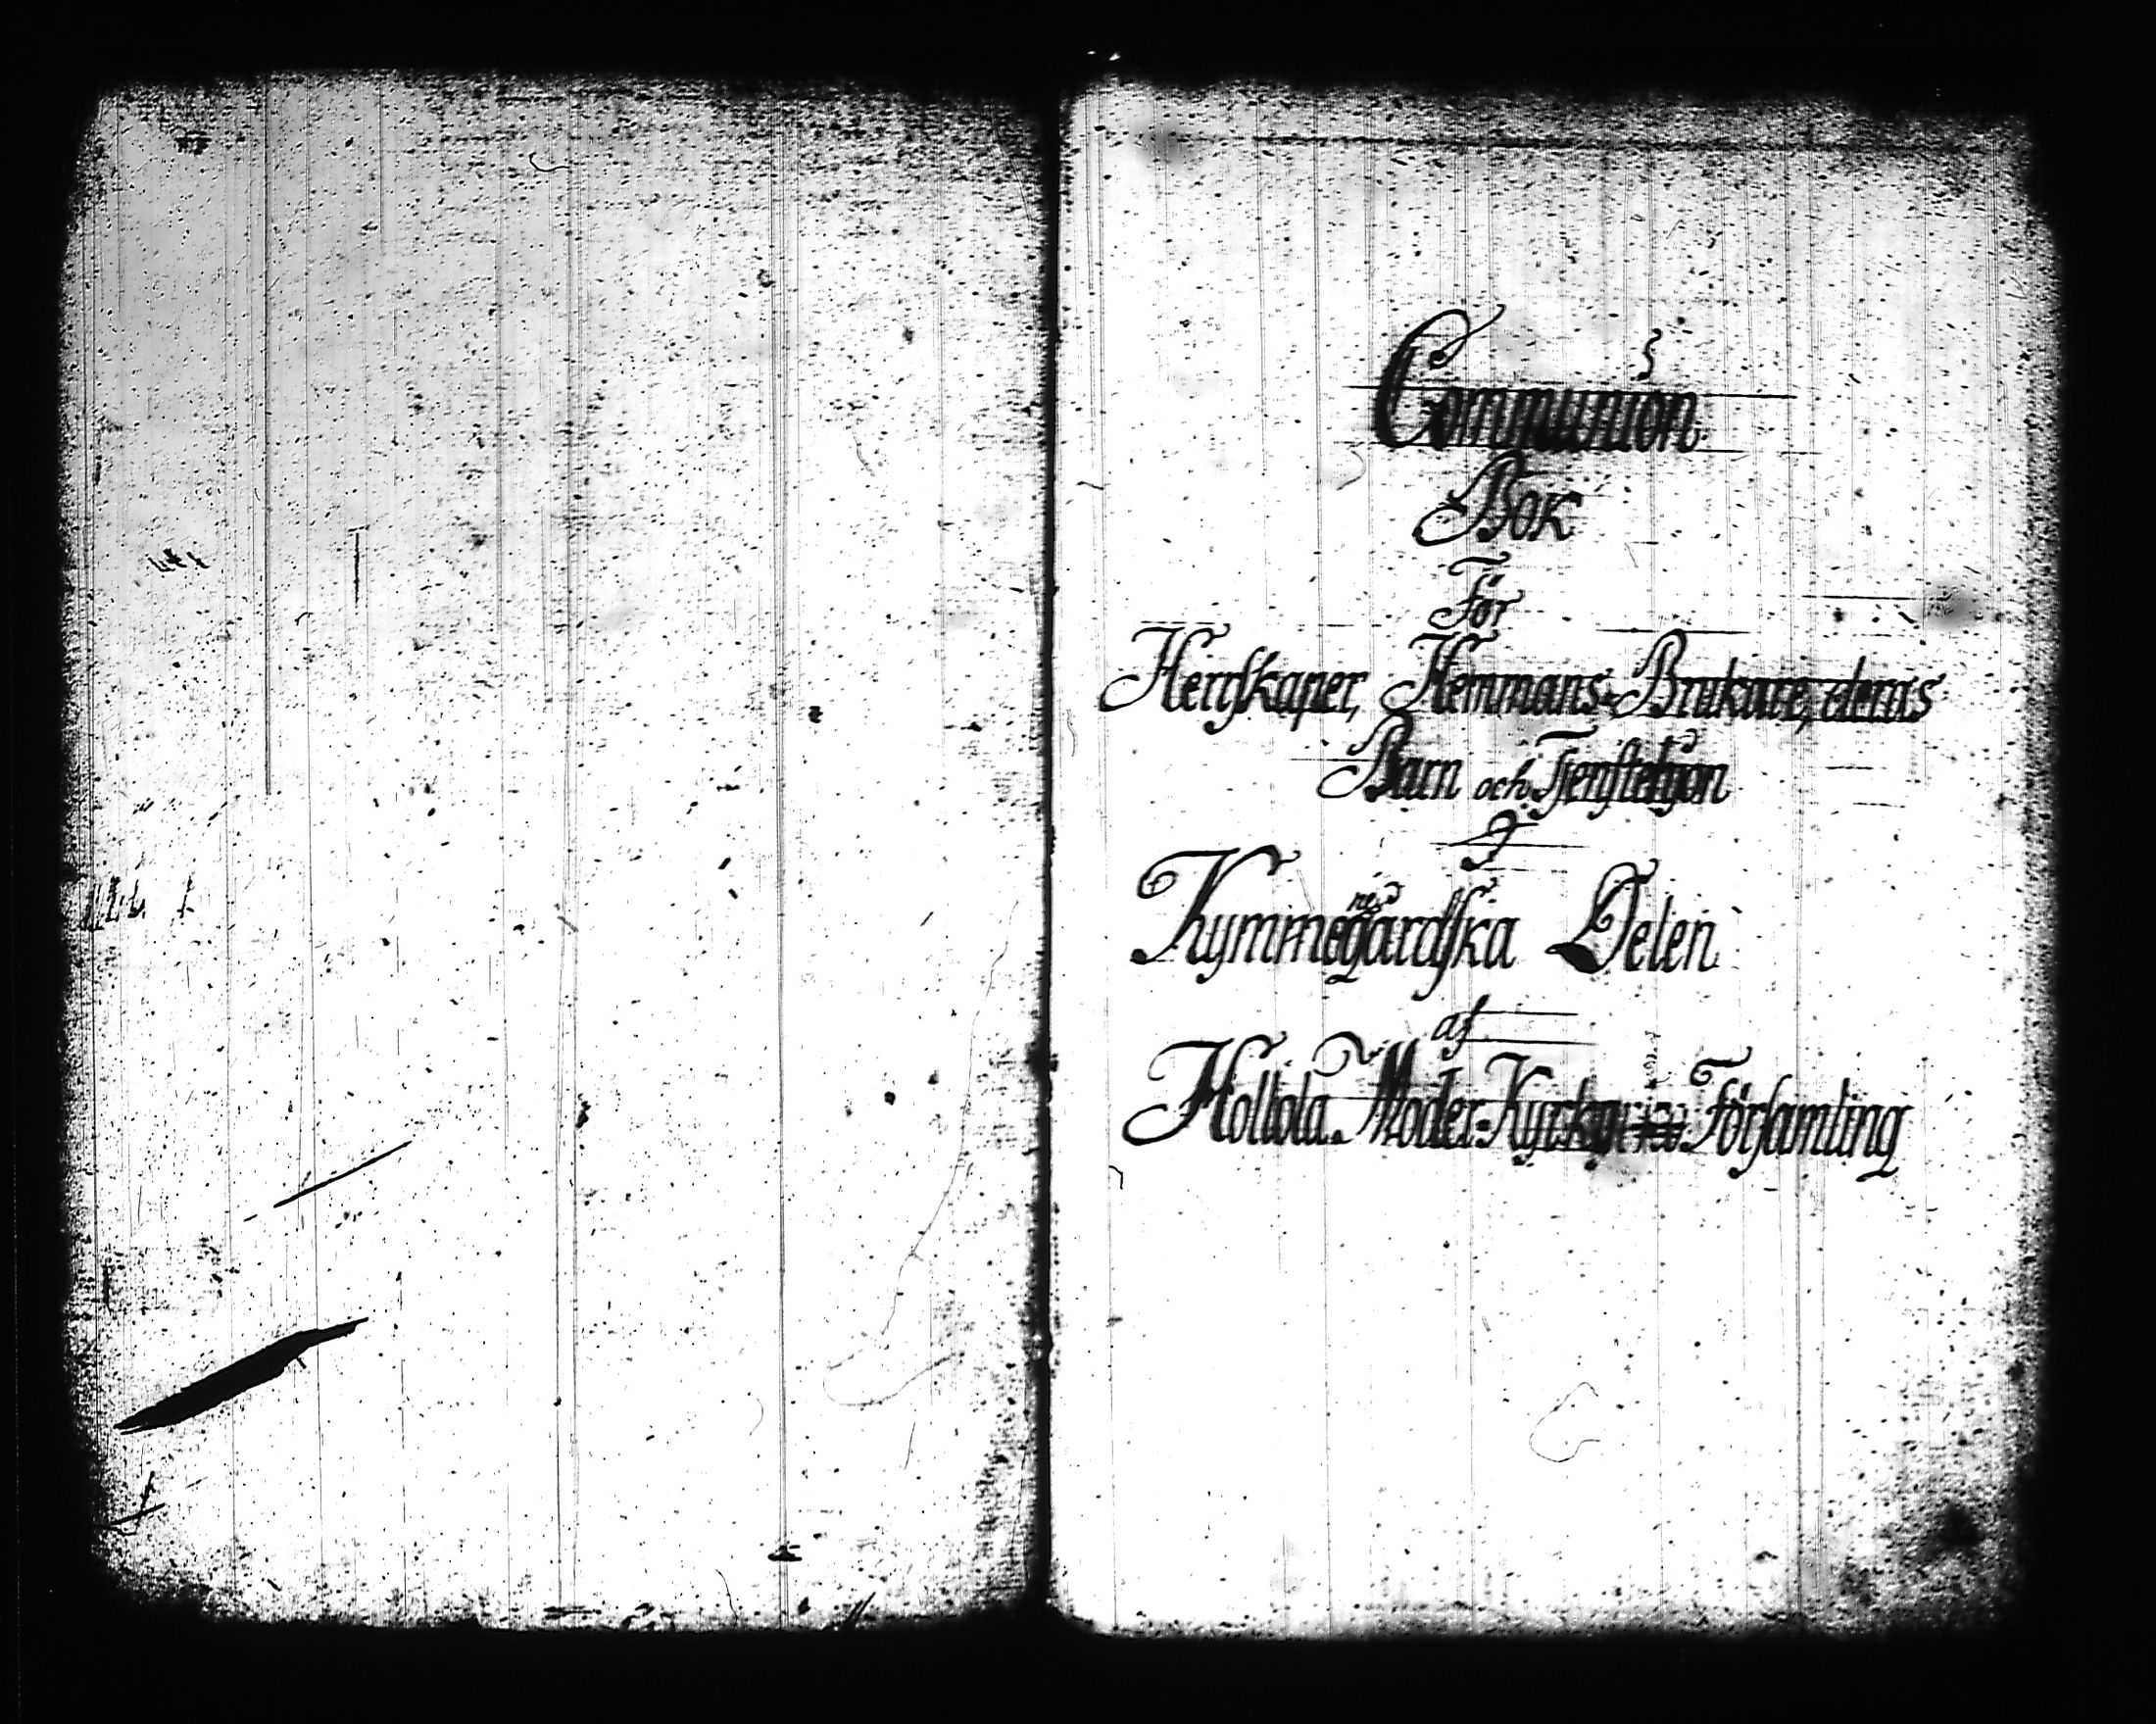 Communion
Bok
För
Herrskaper, Hemmans-Brukare, deras
Barn och Tjenstehjon
I
Kymmenegårdska Delen
af
Hollola Moder-Kyrko Församling